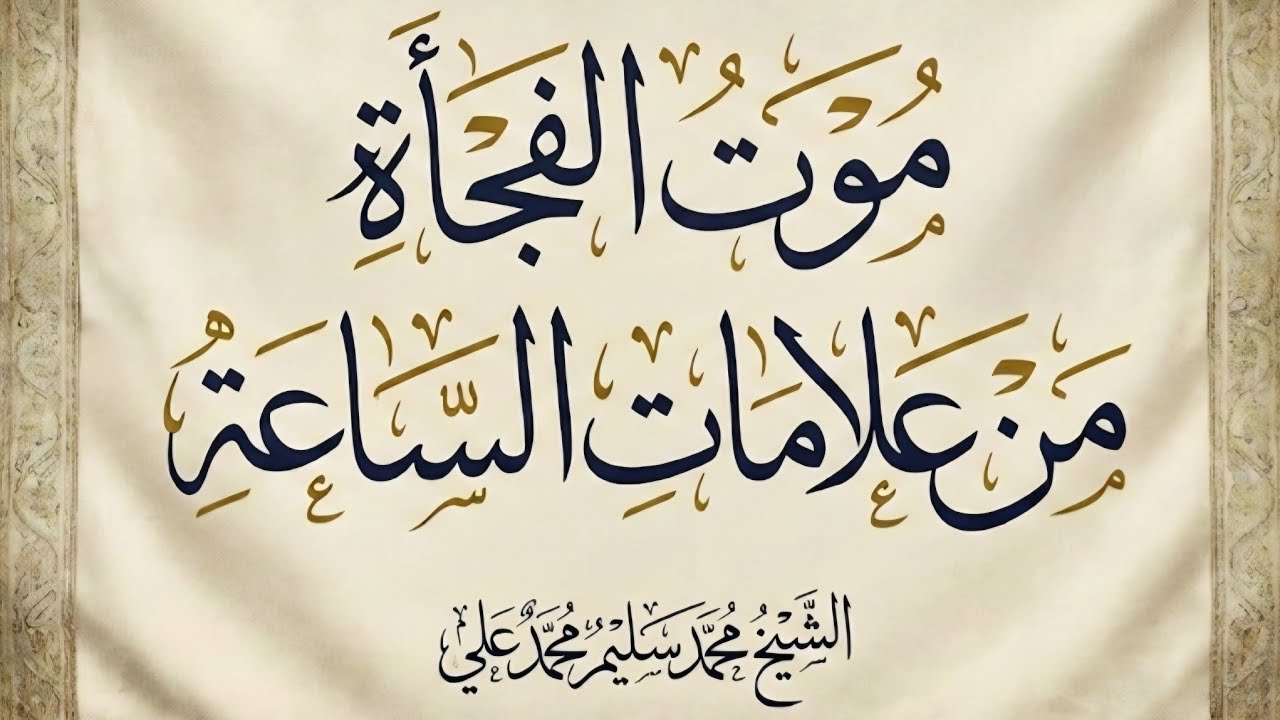 مُوَتُ الفَجْأَةِ
مَنْ عَلَامَاتِ السَّاعَةِ
الشَّيْخُ مُحَمَّد سَلِيمُ مُحَمَّدُ عَلي